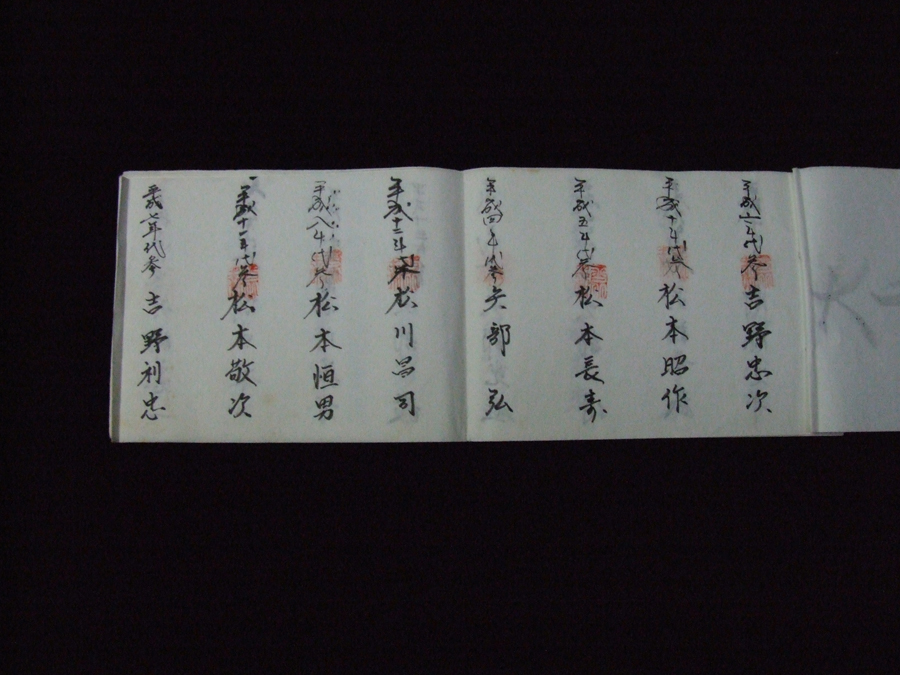 平成六年代参 吉野忠次
平成十年代参 松本昭作
平成五年代参 松本長寿
平成四年代参 矢部弘
平成十二年代参 松川昌司
平成八年代参 松本恒男
平成十一年代参 松本敬次
平成七年代参 吉野利忠